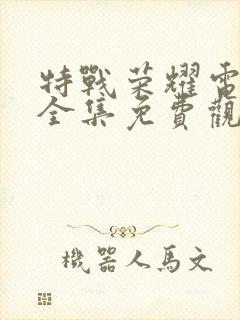 特戰荣耀電
全集免費觀
機器人馬文